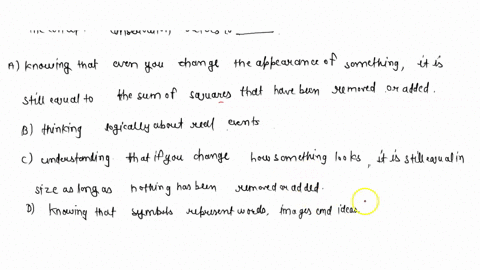 refers to
A) knowing that even you change the appearance of something, it is
still equal to the sum of squares that have been removed or added.
B) thinking logically about real events
C) understanding that if you change how something looks, it is still equal in
size as long as nothing has been removed or added.
D) knowing that symbols represent words, images and ideas.